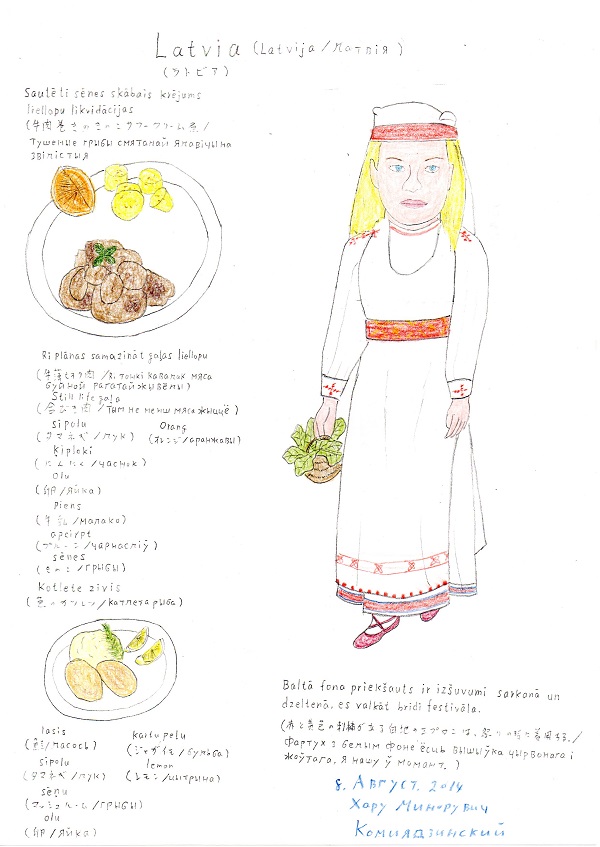 Latvia (Latvija / Матпія)
(ラトビア)
Sautēti sēnes skābais krējums
liellopu likvidācijas
(牛肉巻きのきのこサワークリーム煮 /
Тушеные грыбы смятанай ялавічына
звілістыя
Ri plānas samazināt gaļas liellopu
(牛薄切り肉 / Я. тонкі кавалак мяса
буйной рагатай жывёлы)
Still life gaļa
(合びき肉 / Тым не менш мяса жыццё)
sīpolu
(タマネギ / лук)
Orang
(オレンジ / аранжавы)
Ķiploki
(にんにく / часнок)
Olu
(卵 / яйка)
Piens
(牛乳 / малако)
apcirpt
(プルーン / чарнасліў)
sēnes
(きのこ / грыбы)
Kotlete zivis
(魚のカツレツ / катлета рыба)
lasis
(鮭 / ласось)
kartupeļu
(ジャガイモ / бульба)
sīpolu
(タマネギ / лук)
lemon
(レモン / цытрына)
sēņu
(マッシュルーム / грыбы)
olu
(卵 / яйка)
Baltā fona priekšauts ir izšuvumi sarkanā un
dzeltenā, es valkāt brīdi festivāla.
(赤と黄色の刺繍が立つ白地のエプロンは、祭りの時に着用する. /
Фартух з белым фоне ёсць вышыўка чырвонага і
жоўтага, я нашу ў момант. )
8. Август. 2014
Хару Минорувич
Комиядзинский